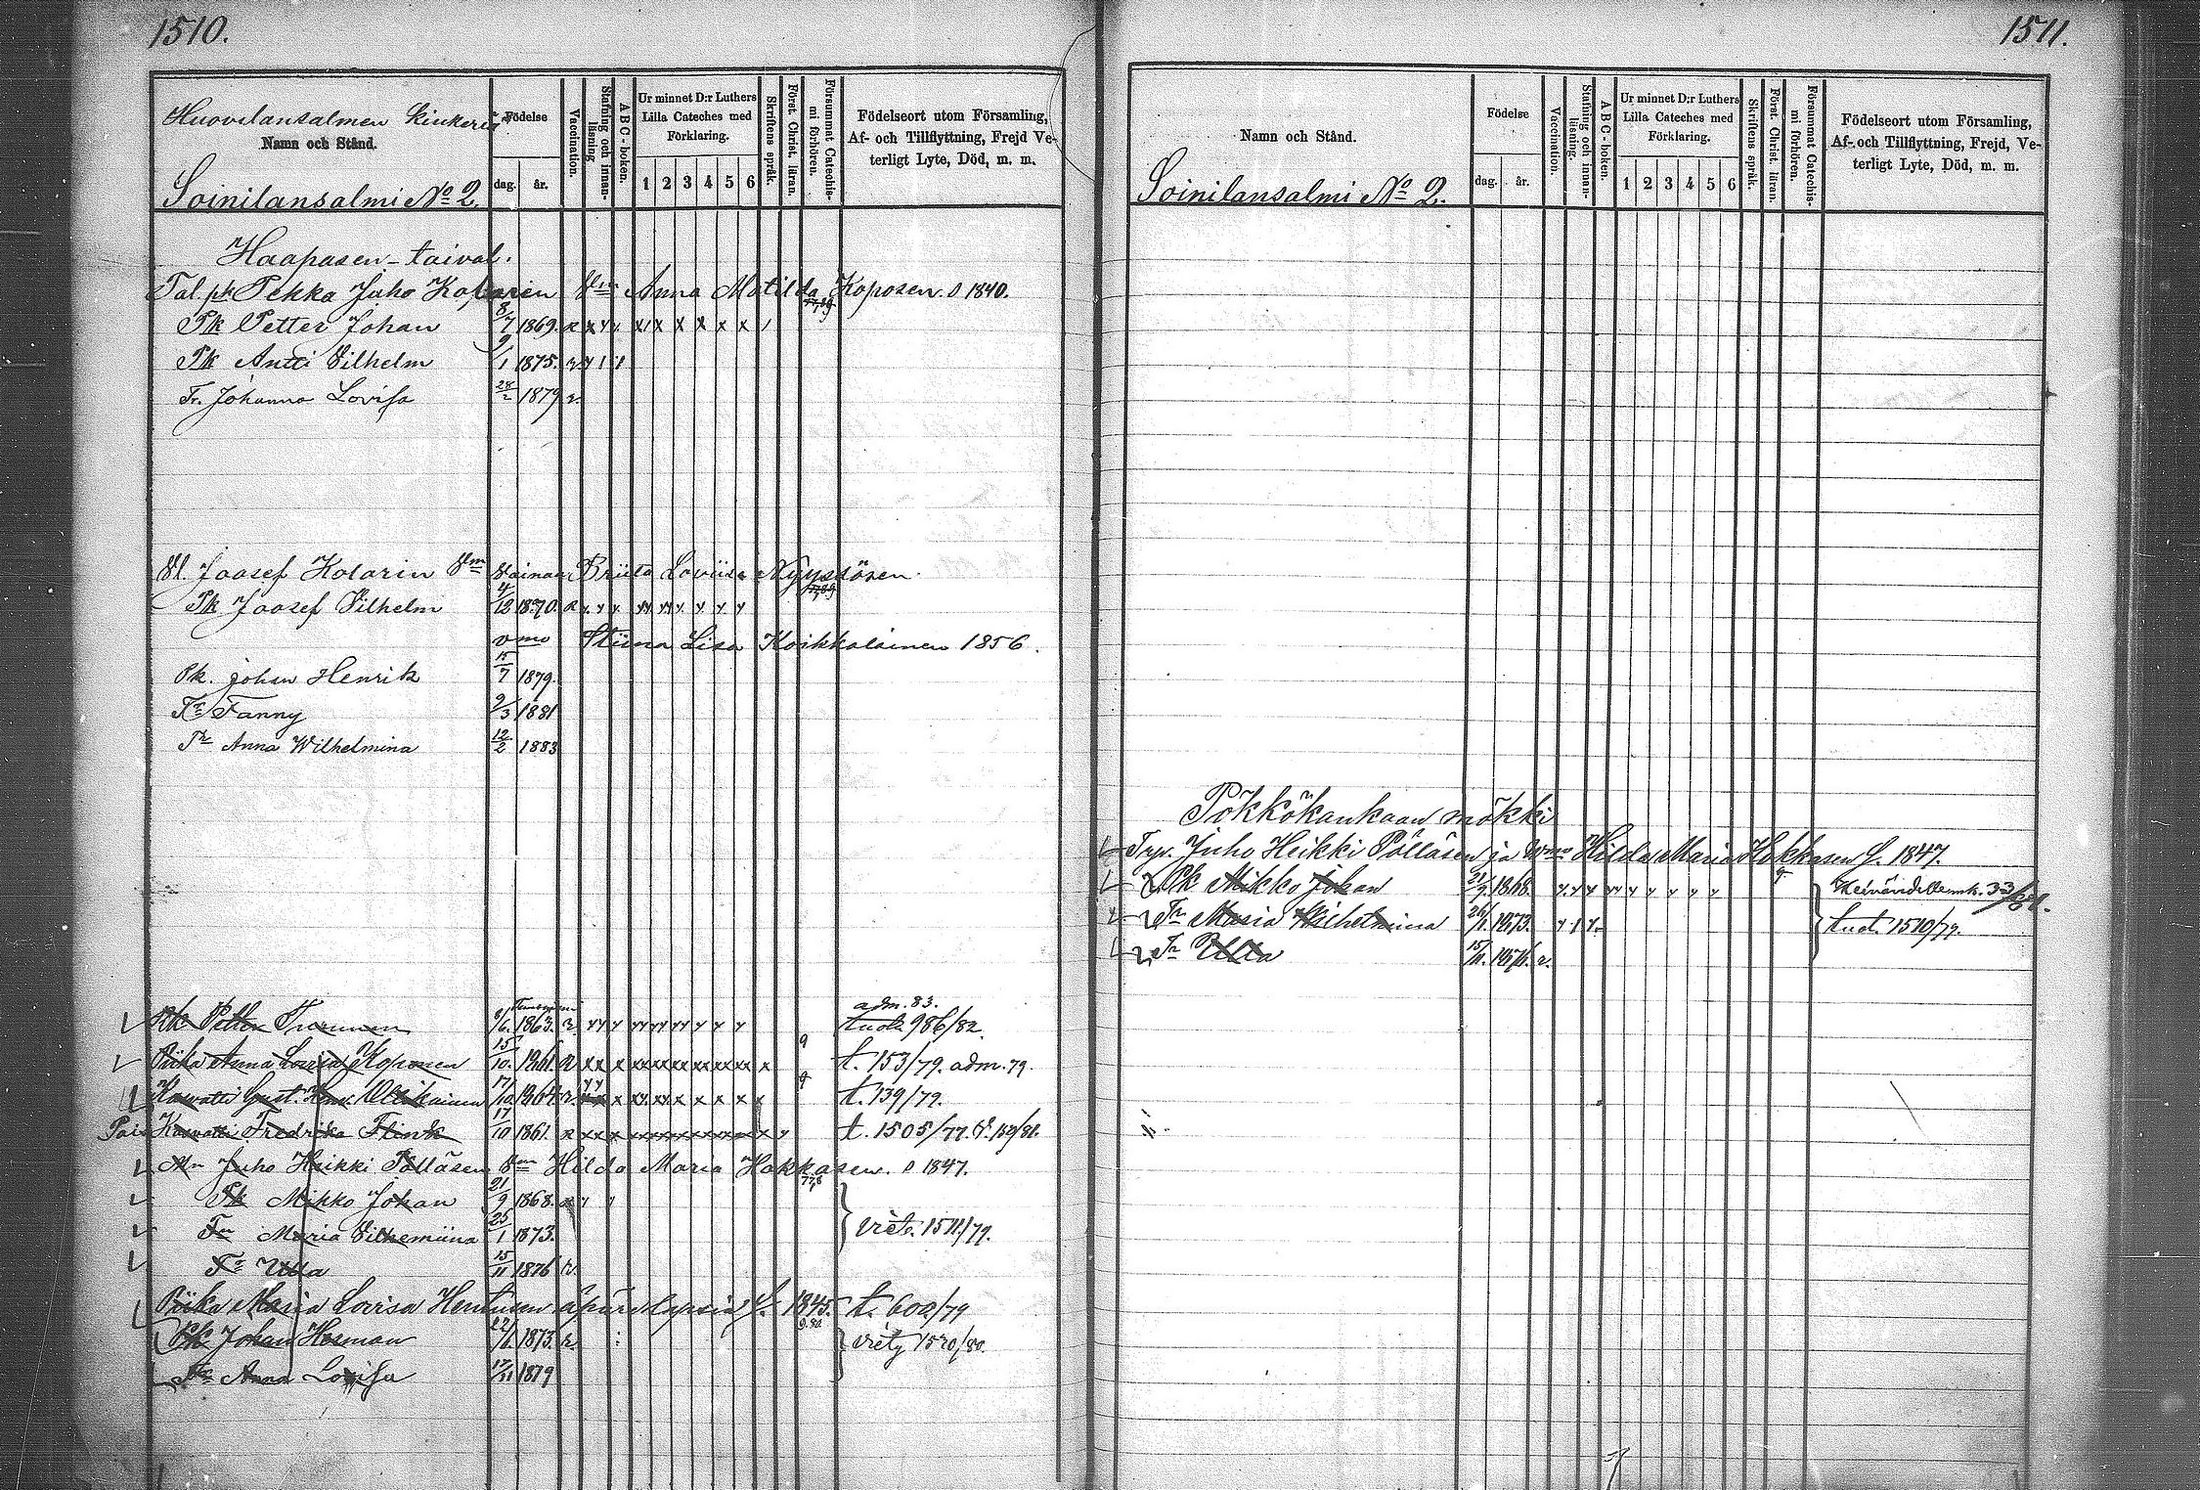 1510.
Huovilansalmen kinkeriä
Namn och Stånd.
Soinilansalmi No 2.
Födelse
dag. år.
Vaccination.
Stafning och innan-läsning
ABC-boken.
Ur minnet D:r Luthers Lilla Cateches med Förklaring.
1 2 3 4 5 6
Skriftens språk.
Först. Christ. läran.
Försummat Catechis-mi förhören.
Födelseort utom Församling, Af- och Tillflyttning, Frejd Ve-terligt Lyte, Död, m. m.
Haapasen-taival.
Tal. pk Pekka Juho Kolarin Vm Anna Matilda Koposen s 1840.
Pk Petter Johan 8/7 1869. x x x x x x x x x
Pk Antti Vilhelm 9/1 1875.
Tr. Johanna Lovisa 28/2 1879 r.
Vl. Joosef Kolarin Vm Vainan Briita Loviisa Nyyssösen.
Pk Joosef Vilhelm 4/12 1870.
vmo Stiina Lisa Koikkalainen 1856.
Pk. Johan Henrik 15/7 1879.
Tr Fanny 2/3 1881
Tr Anna Wilhelmina 12/2 1883
adm. 83.
Rk Petter 1863. tuok 986/82.
Piika Anna Lovisa Koponen 15/10. 1861. t. 153/79. adm. 79.
Kasvatti Gust. 17/10. 1864. r. t. 139/79.
Kasvatti Fredrika Flink 17/10 1861. t. 1505/77.
Mn Juho Heikki Pölläsen Vm Hilda Maria Hakkasen. s 1847.
Pk Mikko Johan 21/9 1868.
Tr Maria Vilhemiina 25/1 1873. viety. 1511/79.
Tr Ulla 15/11 1876 r.
Piika Maria Lovisa äpärälapsia S. 1845. t. 600/79
Pk Johan Herman 1873. r. viety 1520/80.
Tr Anna Lovisa 1879
1511.
Namn och Stånd.
Soinilansalmi No 2.
Födelse
dag. år.
Vaccination.
Stafning och innan-läsning.
ABC-boken.
Ur minnet D:r Luthers Lilla Cateches med Förklaring.
1 2 3 4 5 6
Skriftens språk.
Först. Christ. läran.
Försummat Catechis-mi förhören.
Födelseort utom Församling, Af- och Tillflyttning, Frejd, Ve-terligt Lyte, Död, m. m.
Pökkökankaan mökki
Juho Heikki Pölläsen ja Hilda Maria Hakkasen S. 1847.
Pk Mikko Johan 21/9. 1868.
Tr Maria Wilhelmina 1873. tuot. 1510/79.
Tr Ulla 15/11. 1876. r.